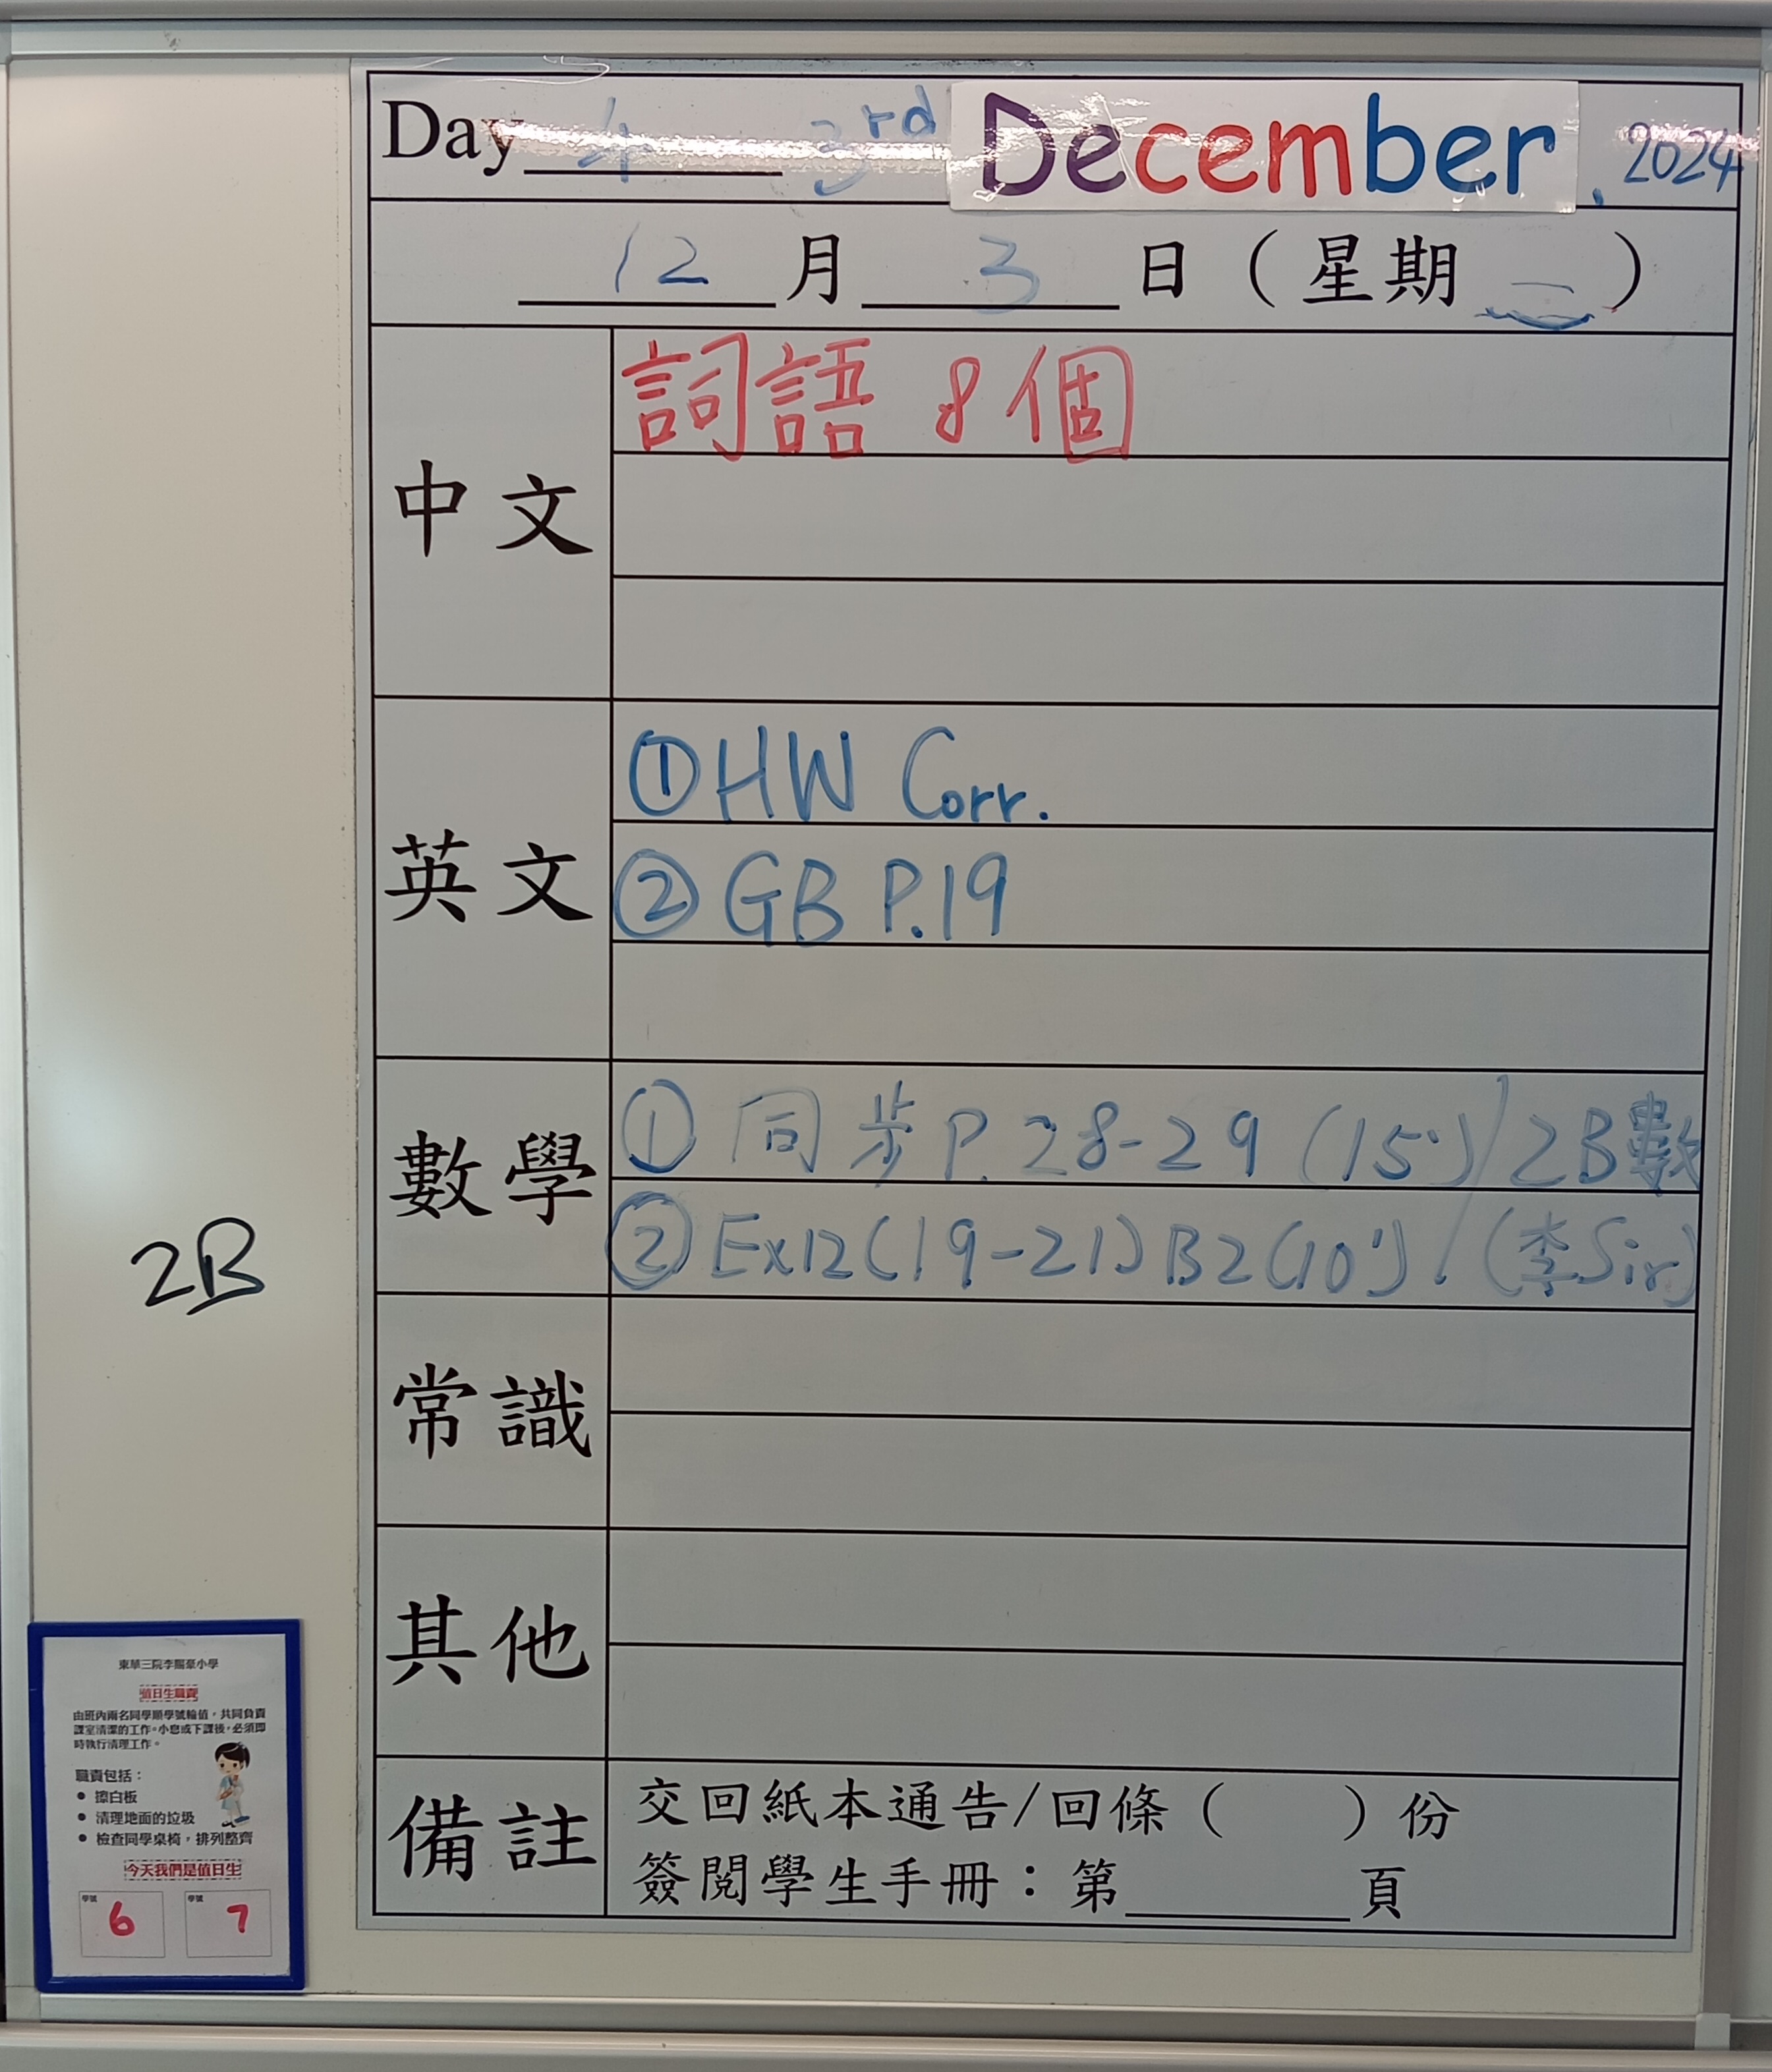 Day 4 3rd December, 2024
12月3日（星期二）
中文
詞語 8個
英文
①HW Corr.
②GB P.19
數學
①同步P.28-29 (15') / 2B數
②Ex12(19-21)B2(10') / (李Sir)
常識
其他
備註
交回紙本通告/回條（ ）份
簽閱學生手冊：第____頁
2B
東華三院李賜豪小學
值日生職責
由班內兩名同學順學號輪值，共同負責
課室清潔的工作。小息或下課後，必須即
時執行清理工作。
職責包括：
• 擦白板
• 清理地面的垃圾
• 檢查同學桌椅，排列整齊
今天我們是值日生
學號 學號
6 7